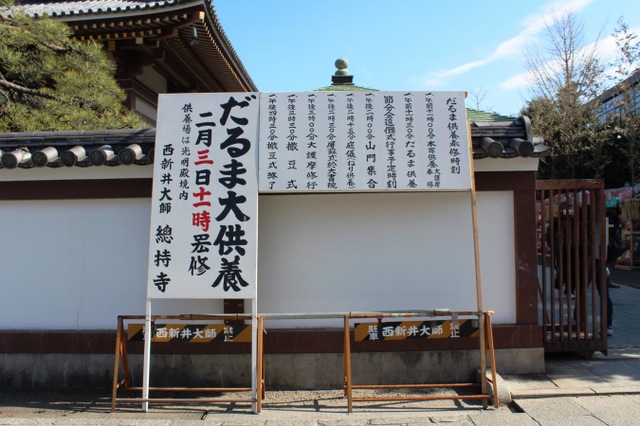 だるま大供養
二月三日十一時厳修
供養場は光明殿境内
西新井大師 總持寺
だるま供養奉修時刻
午前十一時〇〇分
だるま供養
節分会追儺式行事予定時刻
午後二時〇〇分 山門集合
午後三時〇〇分 大護摩修行
午後三時三〇分 撒豆式
午後四時三〇分 撒豆式終了
駐車 西新井大師 禁止
駐車 西新井大師 禁止